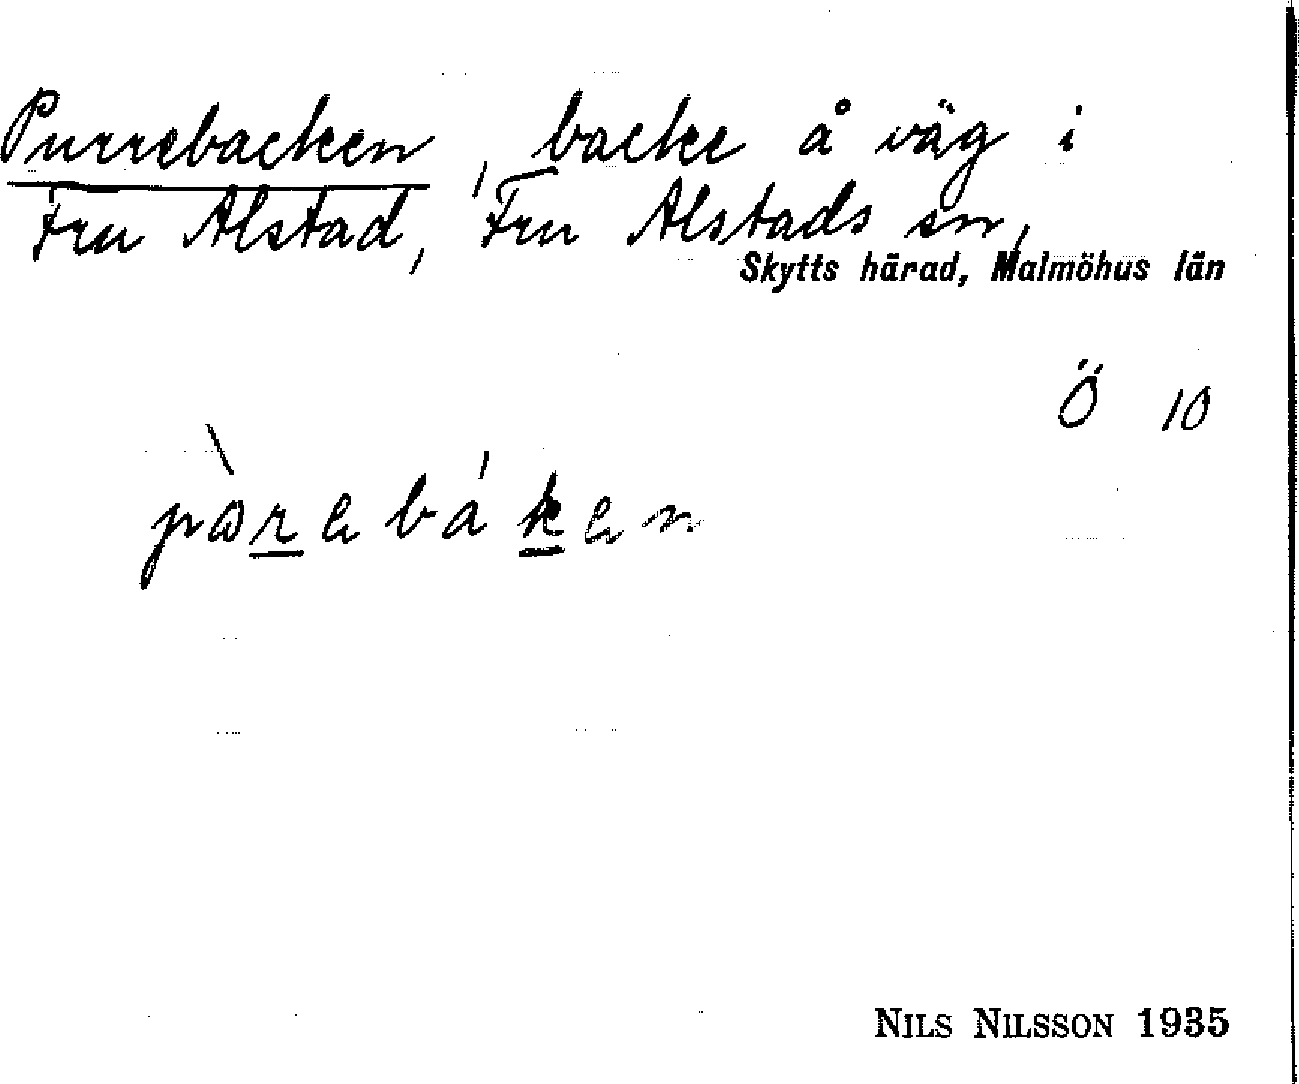 Purrebacken, backe å väg i
Fru Alstad, Fru Alstads sn,
Skytts härad, Malmöhus län
Ö 10
pàrebáken
NILS NILSSON 1935